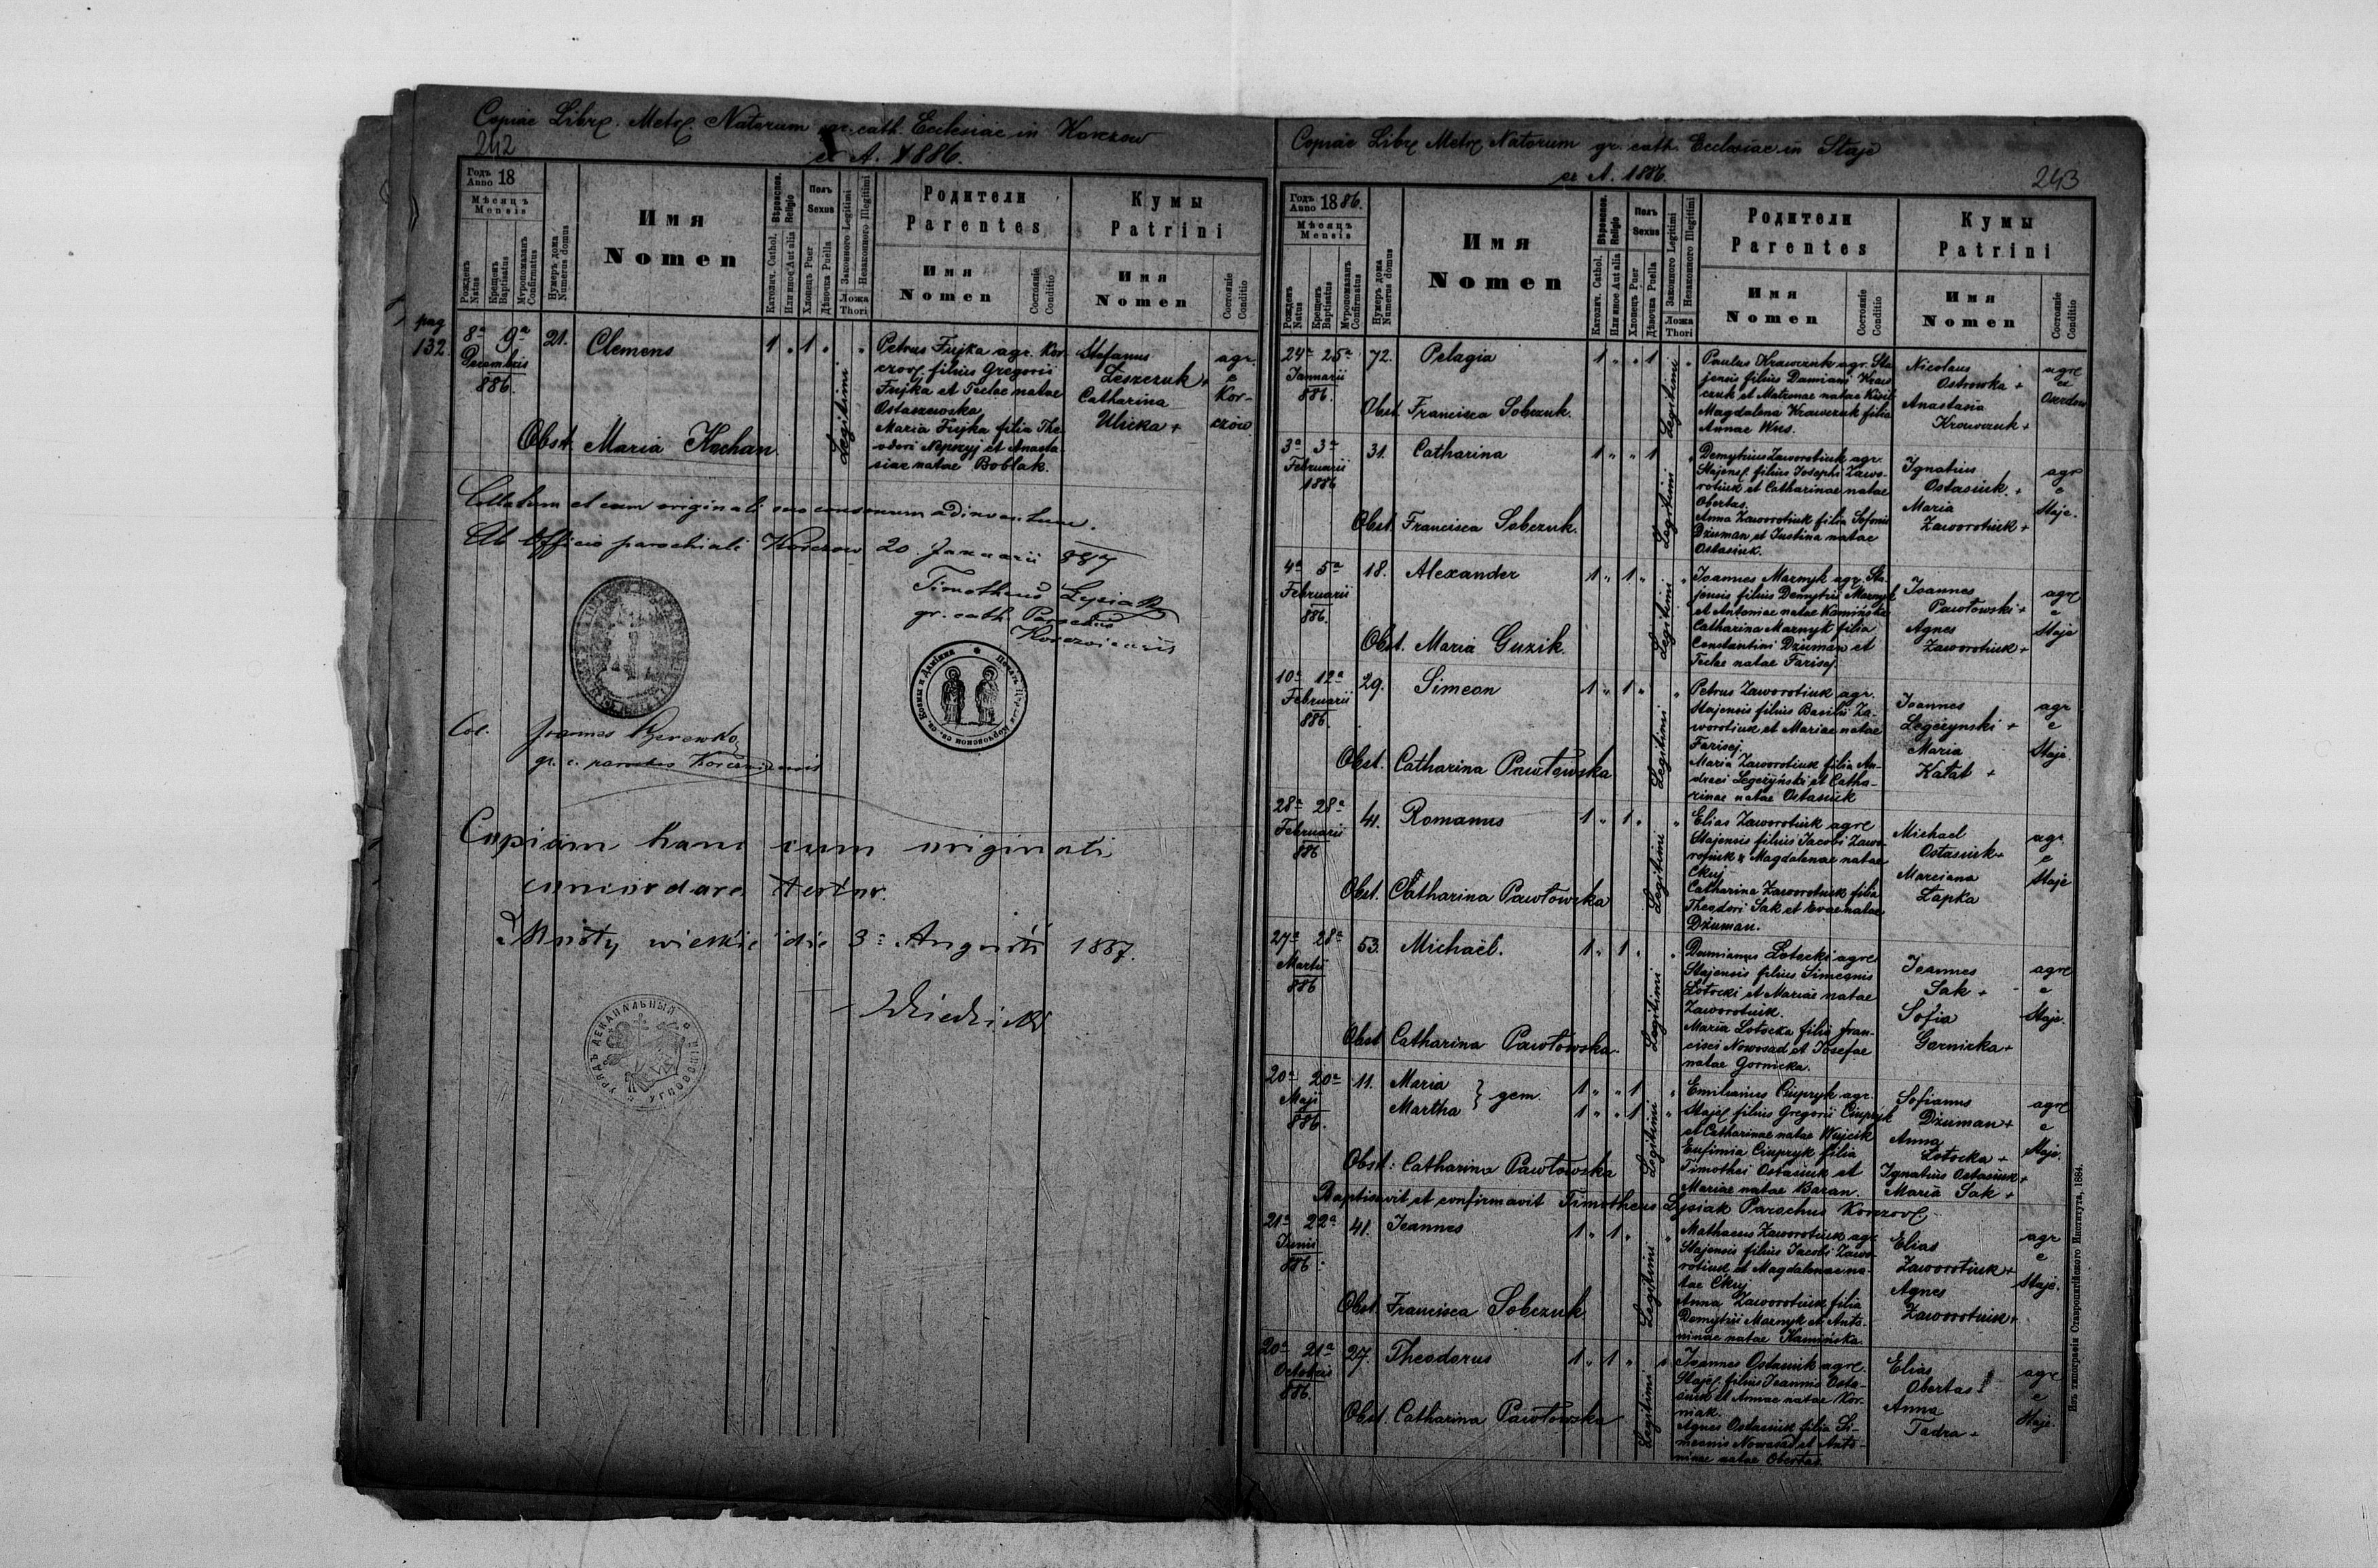 Copiae Libr. Metr. Natorum gr. cath. Ecclesiae in Korczow
242
ex A. 1886.
Годъ
Anno 18
Мѣсяцъ
Mensis
Рожденъ
Natus
Крещенъ
Baptisatus
Мѵропомазанъ
Confirmatus
Нумеръ дома
Numerus domus
Имя
Nomen
Вѣроиспов.
Religio
Католич. Cathol.
Или иное Aut alia
Полъ
Sexus
Хлопецъ Puer
Дѣвочка Puella
Законного Legitimi
Незаконного Illegitimi
Ложа
Thori
Родители
Parentes
Имя
Nomen
Состояніе
Conditio
Кумы
Patrini
Имя
Nomen
Состояніе
Conditio
pag
132.
8a 9a 21. Clemens 1 " 1 " "
Decembris
886.
Legitimi
Petrus Fujka agr. Kor-
czov. filius Gregorii
Fujka et Teclae natae
Ostaszewska
Maria Fujka filia The-
odori Nepszyj et Anasta-
siae natae Boblak.
Stefanus
Leszczuk +
Catharina
Ulicka +
agr.
e
Kor-
czów
Obst. Maria Kochan
Collatum et cum originali suo consonum adinventum.
Ab Officio parochiali Korczow 20. Januarii 887
Timotheus Lysiak
gr. cath. Parochus
Korczoviensis
Col. Joannes
gr. c. parochus Korczoviensis
Copiam hanc cum originali
concordare testor.
die 3: Augusti 1887.
Copiae Libr. Metr. Natorum gr. cath. Ecclesiae in Staje
ex A. 1886.
243
Годъ
Anno 1886.
Мѣсяцъ
Mensis
Рожденъ
Natus
Крещенъ
Baptisatus
Мѵропомазанъ
Confirmatus
Нумеръ дома
Numerus domus
Имя
Nomen
Вѣроиспов.
Religio
Католич. Cathol.
Или иное Aut alia
Полъ
Sexus
Хлопецъ Puer
Дѣвочка Puella
Законного Legitimi
Незаконного Illegitimi
Ложа
Thori
Родители
Parentes
Имя
Nomen
Состояніе
Conditio
Кумы
Patrini
Имя
Nomen
Состояніе
Conditio
24a 25a 72. Pelagia 1 " " 1 "
Januarii
886.
Legitimi
Paulus Krawczuk agr. Sta-
jensis filius Damiani Kraw-
czuk et Matronae natae
Magdalena Krawczuk filia
Annae Wus.
Nicolaus
Ostrowka +
Anastasia
Krawczuk +
agr.
ex
Oserdow
Obst. Francisca Sobczuk.
3a 3a 31. Catharina 1 " " 1 "
Februarii
1886
Legitimi
Demytrius Zaworotiuk agr.
Stajens. filius Josephi Zawo-
rotiuk et Catharinae natae
Obertas.
Anna Zaworotiuk filia Sofonii
Dżuman et Justina natae
Ostasiuk.
Ignatius
Ostasiuk. +
Maria
Zaworotiuk +
agr
e
Staje.
Obst. Francisca Sobczuk.
4a 5a 18. Alexander 1 " 1 " "
Februarii
886.
Legitimi
Joannes Marnyk agr. Sta-
jensis filius Demytrii Marnyk
et Antoniae natae Kamińska
Catharina Marnyk filia
Constantini Dżuman et
Teclae natae Farisej.
Joannes
Pawłowski +
Agnes
Zaworotiuk +
agr
e
Staje
Obst. Maria Guzik.
10a 12a 29. Simeon 1 " 1 " "
Februarii
886.
Legitimi
Petrus Zaworotiuk agr.
Stajensis filius Basilii Za-
worotiuk et Mariae natae
Farisej.
Maria Zaworotiuk filia An-
dreei Legeżyński et Catha-
rinae natae Ostasiuk
Joannes
Legeżynski +
Maria
Kałat +
agr
e
Staje
Obst. Catharina Pawłowska
28a 28a 41. Romanus 1 " 1 " "
Februarii
886
Legitimi
Elias Zaworotiuk agr
Stajensis filius Jacobi Zawo-
rotiuk & Magdalenae natae
Ckuj
Catharina Zaworotiuk filia
Theodori Sak et Evae natae
Dżuman.
Michael
Ostasiuk +
Marciana
Łapka
agr.
e
Staje
Obst. Catharina Pawłowska
27a 28a 53. Michaël. 1 " 1 " "
Martii
886
Legitimi
Damianus Łotocki agr
Stajensis filius Simeonis
Łotocki et Mariae natae
Zaworotiuk.
Maria Łotocka filia Fran-
cisci Nowosad et Josefae
natae Gornicka.
Joannes
Sak +
Sofia
Garnicka +
agr
e
Staje.
Obst. Catharina Pawłowska.
20a 20a 11. Maria } gem. 1 " " 1 "
Martha 1 " " 1 "
Maji
886.
Legitimi
Emilianus Ciupryk agr.
Staje. filius Gregorii Ciupryk
et Catharinae natae Wujcik
Eufimia Ciupryk filia
Timothei Ostasiuk et
Mariae natae Baran.
Sofianus
Dżuman +
Anna
Łotocka +
Ignatius Ostasiuk +
Maria Sak +
agr
e
Staje.
Obst: Catharina Pawłowska
Baptisavit et confirmavit Timotheus Lysiak Parochus Korczov.
21a 22a 41. Joannes 1 " 1 " "
Junii
886.
Legitimi
Mathaeus Zaworotiuk agr.
Stajensis filius Jacobi Zawo-
rotiuk et Magdalenae na-
tae Ckuj
Anna Zaworotiuk filia
Demytrii Marnyk et Anto-
ninae natae Kamińska.
Elias
Zaworotiuk +
Agnes
Zaworotiuk +
agr
e
Staje.
Obst. Francisca Sobczuk
20a 21a 27. Theodorus 1 " 1 " "
Octobris
886.
Legitimi
Joannes Ostasiuk agr.
Staje. filius Joannis Osta-
siuk et Annae natae Kor-
niak.
Agnes Ostasiuk filia Si-
meonis Nowosad et Anto-
ninae natae Obertas.
Elias
Obertas +
Anna
Tadra +
agr
e
Staje.
Obst. Catharina Pawłowska
Изъ типографіи Ставропигійского Института, 1884.